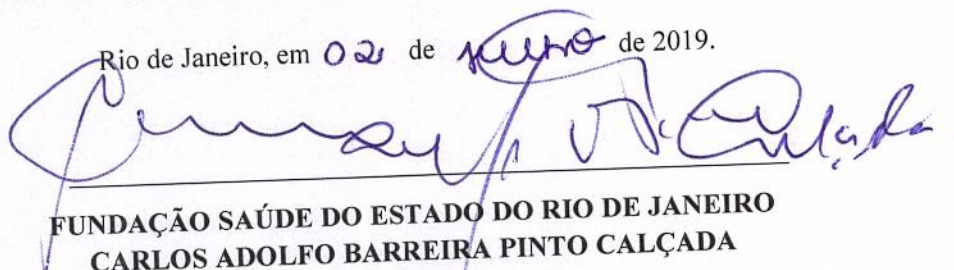 Rio de Janeiro, em 02 de de 2019.
FUNDAÇÃO SAÚDE DO ESTADO DO RIO DE JANEIRO
CARLOS ADOLFO BARREIRA PINTO CALÇADA